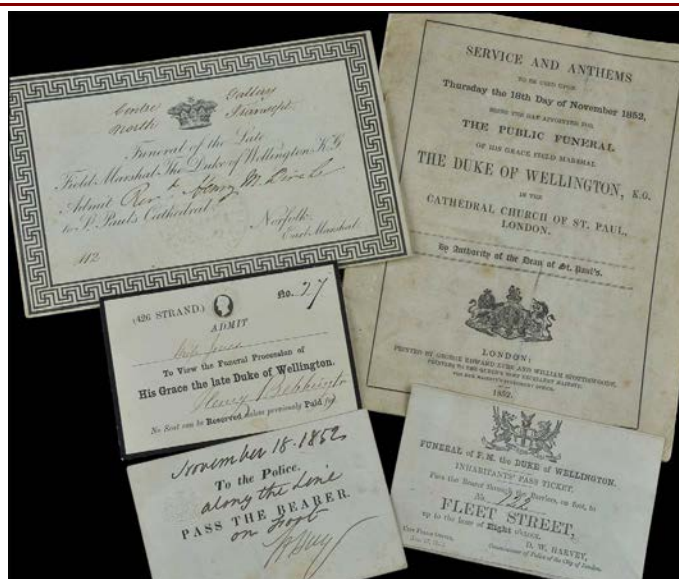 Centre Gallery
North Transept
Funeral of the Late
Field Marshal The Duke of Wellington K.G
Admit Revd. Henry M.
to St. Paul's Cathedral.
Norfolk.
Earl Marshal.
112
SERVICE AND ANTHEMS
TO BE USED UPON
Thursday the 18th Day of November 1852,
BEING THE DAY APPOINTED FOR
THE PUBLIC FUNERAL
OF HIS GRACE FIELD MARSHAL
THE DUKE OF WELLINGTON, K.G.
IN THE
CATHEDRAL CHURCH OF ST. PAUL,
LONDON.
By Authority of the Dean of St. Paul's.
LONDON:
PRINTED BY GEORGE EDWARD EYRE AND WILLIAM SPOTTISWOODE,
PRINTERS TO THE QUEEN'S MOST EXCELLENT MAJESTY.
FOR HER MAJESTY'S STATIONERY OFFICE.
1852.
(426 STRAND.)
No. 27
ADMIT
To View the Funeral Procession of
His Grace the late Duke of Wellington.
Henry
No Seat can be Reserved unless previously Paid for
November 18. 1852
To the Police.
along the Line
PASS THE BEARER.
on foot
FUNERAL of F. M. the DUKE of WELLINGTON.
INHABITANTS' PASS TICKET.
Pass the Bearer through the Barriers, on foot, to
No. 122
FLEET STREET,
up to the hour of Eight o'CLOCK.
D. W. HARVEY,
Commissioner of Police of the City of London.